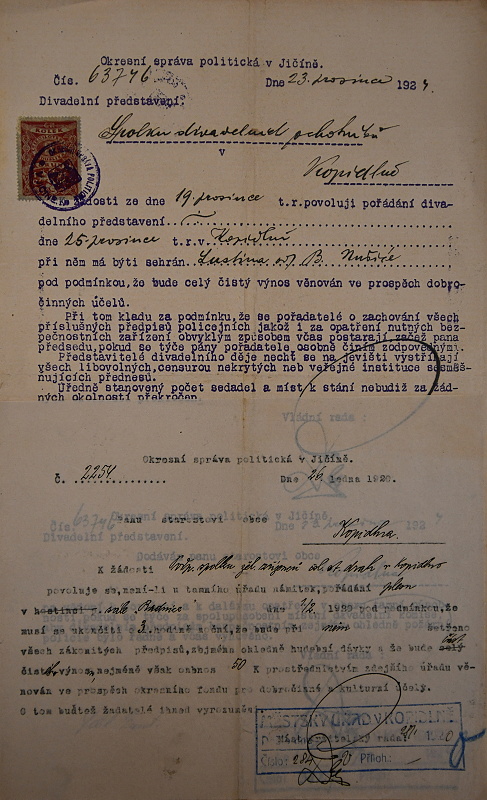 Okresní správa politická v Jičíně.
Čís. 63746
Dne 23. prosince 192
Divadelní představení.
Spolku divadelních ochotníků
v
Kopidlně
KOLEK
žádosti ze dne 19. prosince t.r. povoluji pořádání diva-
delního představení
dne 25. prosince t.r. v Kopidlně
při něm má býti sehrán B. Nušiće
pod podmínkou, že bude celý čistý výnos věnován ve prospěch dobro-
činných účelů.
Při tom kladu za podmínku, že se pořadatelé o zachování všech
příslušných předpisů policejních jakož i za opatření nutných bez-
pečnostních zařízení obvyklým způsobem včas postarají, začež pana
předsedu, pokud se týče pány pořadatele osobně činím zodpovědnými.
Představitelé divadelního děje nechť se na jevišti vystříhají
všech libovolných, censurou nekrytých neb veřejné instituce sesměš-
ňujících přednesů.
Úředně stanovený počet sedadel a míst k stání nebudiž za žád-
ných okolností překročen.
Vládní rada :
Okresní správa politická v Jičíně.
Č. 2254
Dne 26. ledna 1920.
Panu starostovi obce
Kopidlna
K žádosti
povoluje se, není-li u tamního úřadu námitek, pořádání plesu
v hostinci dne 1920 pod podmínkou, že
musí se ukončiti o 3. hodině ranní, že bude při něm šetřeno
všech zákonitých předpisů, zejména ohledně hudební dávky a že bude
čistý výnos, nejméně však obnos 50 K prostřednictvím zdejšího úřadu vě-
nován ve prospěch okresního fondu pro dobročinné a kulturní účely.
O tom buďtež žadatelé ihned vyrozuměni.
MĚSTSKÝ ÚŘAD V KOPIDLNĚ
1920
Číslo: 284 Příloh: